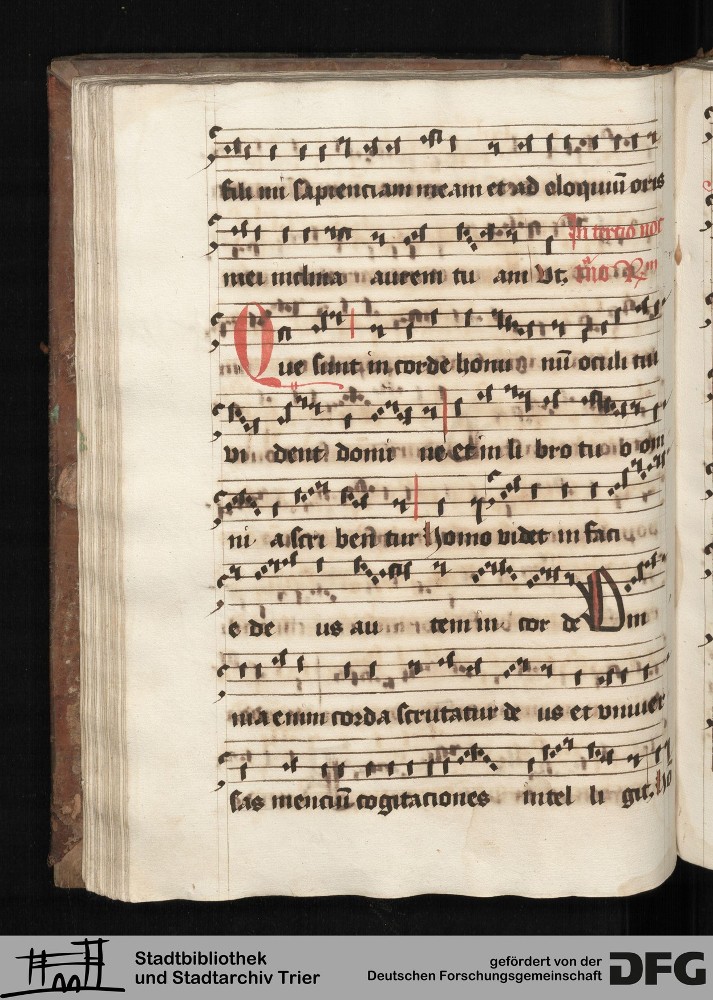 fili mi sapienciam meam et ad eloquiu̅ oris
mei inclina aurem tu am Vt. In tertio noc
Que sunt in corde homi nu̅ oculi tui
vi dent domi ne et in li bro tu o om
ni a scri bent̅ tur Homo videt in faci
e de us au tem in cor de Om
nia enim corda scrutatur de us et vniuer
sas menciu̅ cogitaciones intel li git.
Stadtbibliothek
und Stadtarchiv Trier
gefördert von der
Deutschen Forschungsgemeinschaft
DFG